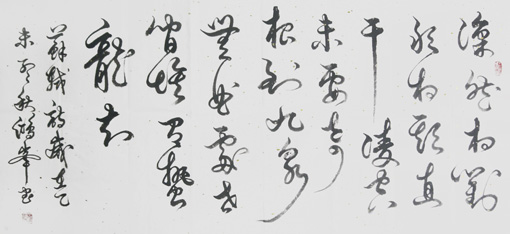 凛然相對
敢相欺直
干凌空
未要奇
根到九泉
無曲處世
間惟有蟄
龍知
蘇軾詩歲在乙
未秋鴻峯書